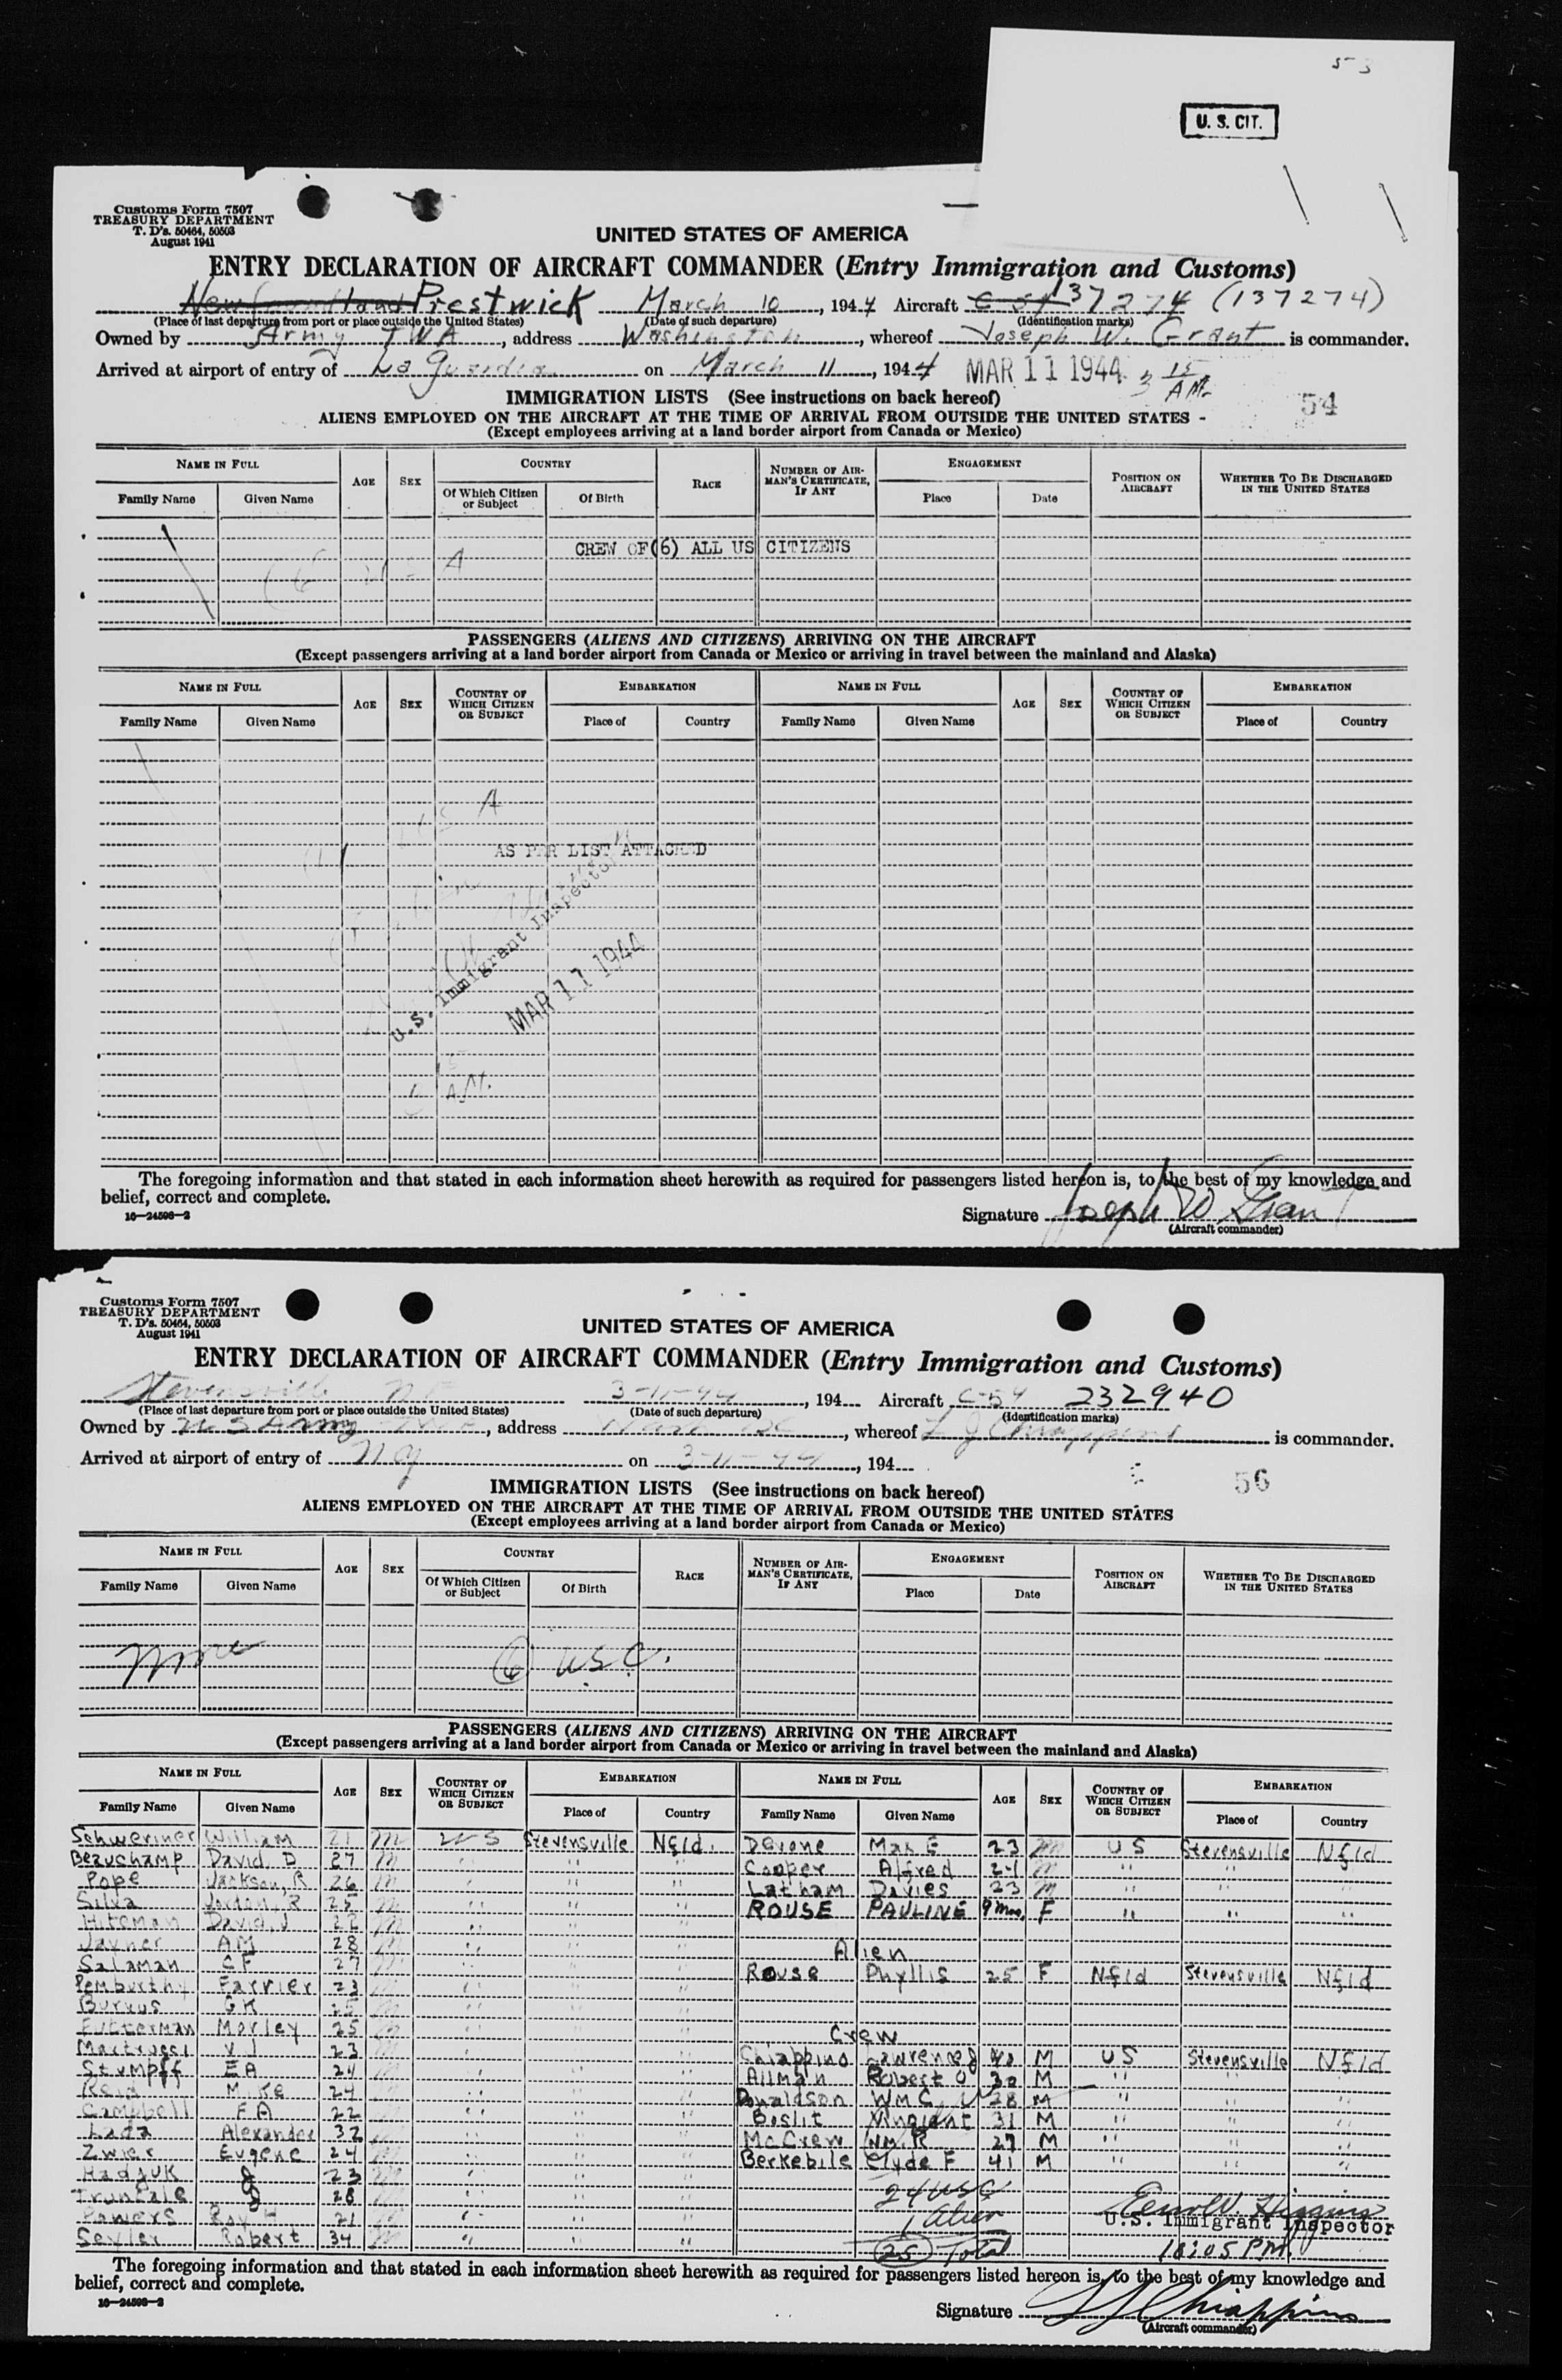 53
U. S. CIT.
Customs Form 7507
TREASURY DEPARTMENT
T. D's. 50464, 50503
August 1941
UNITED STATES OF AMERICA
ENTRY DECLARATION OF AIRCRAFT COMMANDER (Entry Immigration and Customs)
Newfoundland Prestwick March 10, 1944 Aircraft C 54 137274 (137274)
(Place of last departure from port or place outside the United States) (Date of such departure) (Identification marks)
Owned by Army TWA, address Washington, whereof Joseph W. Grant is commander.
Arrived at airport of entry of La Guardia on March 11, 1944 MAR 11 1944 3 15 AM.
IMMIGRATION LISTS (See instructions on back hereof) 54
ALIENS EMPLOYED ON THE AIRCRAFT AT THE TIME OF ARRIVAL FROM OUTSIDE THE UNITED STATES
(Except employees arriving at a land border airport from Canada or Mexico)
NAME IN FULL AGE SEX COUNTRY RACE NUMBER OF AIRMAN'S CERTIFICATE, IF ANY ENGAGEMENT POSITION ON AIRCRAFT WHETHER TO BE DISCHARGED IN THE UNITED STATES
Family Name Given Name Of Which Citizen or Subject Of Birth Place Date
CREW OF(6) ALL US CITIZENS
(6 U S A
PASSENGERS (ALIENS AND CITIZENS) ARRIVING ON THE AIRCRAFT
(Except passengers arriving at a land border airport from Canada or Mexico or arriving in travel between the mainland and Alaska)
NAME IN FULL AGE SEX COUNTRY OF WHICH CITIZEN OR SUBJECT EMBARKATION NAME IN FULL AGE SEX COUNTRY OF WHICH CITIZEN OR SUBJECT EMBARKATION
Family Name Given Name Place of Country Family Name Given Name Place of Country
U S A
AS PER LIST ATTACHED
U.S. Immigrant Inspector
MAR 11 1944
A.M.
The foregoing information and that stated in each information sheet herewith as required for passengers listed hereon is, to the best of my knowledge and
belief, correct and complete.
16—24598—2
Signature Joseph W Grant
(Aircraft commander)
Customs Form 7507
TREASURY DEPARTMENT
T. D's. 50464, 50503
August 1941
UNITED STATES OF AMERICA
ENTRY DECLARATION OF AIRCRAFT COMMANDER (Entry Immigration and Customs)
Stevensville N F 3-11-44, 194 Aircraft C-54 232940
(Place of last departure from port or place outside the United States) (Date of such departure) (Identification marks)
Owned by U S Army TWA, address Wash DC, whereof L J Chiappino is commander.
Arrived at airport of entry of N Y on 3-11-44, 194
IMMIGRATION LISTS (See instructions on back hereof) 56
ALIENS EMPLOYED ON THE AIRCRAFT AT THE TIME OF ARRIVAL FROM OUTSIDE THE UNITED STATES
(Except employees arriving at a land border airport from Canada or Mexico)
NAME IN FULL AGE SEX COUNTRY RACE NUMBER OF AIRMAN'S CERTIFICATE, IF ANY ENGAGEMENT POSITION ON AIRCRAFT WHETHER TO BE DISCHARGED IN THE UNITED STATES
Family Name Given Name Of Which Citizen or Subject Of Birth Place Date
None (6) U.S.C.
PASSENGERS (ALIENS AND CITIZENS) ARRIVING ON THE AIRCRAFT
(Except passengers arriving at a land border airport from Canada or Mexico or arriving in travel between the mainland and Alaska)
NAME IN FULL AGE SEX COUNTRY OF WHICH CITIZEN OR SUBJECT EMBARKATION NAME IN FULL AGE SEX COUNTRY OF WHICH CITIZEN OR SUBJECT EMBARKATION
Family Name Given Name Place of Country Family Name Given Name Place of Country
Schweriner William 21 M U S Stevensville Nfld. Devone Max E 23 M U S Stevensville Nfld
Beauchamp David D 27 M " " " Cooper Alfred 21 M " " "
Pope Jackson, R 26 M " " " Latham Davies 23 M " " "
Silva Jordon, R 25 M " " " ROUSE PAULINE 9 mos. F " " "
Hiteman David J 22 M " " "
Jayner AM 28 M " " " Alien
Salaman CF 27 M " " " Rouse Phyllis 25 F Nfld Stevensville Nfld
Pemburthy Farrier 23 M " " "
Burrus GK 25 M " " "
Futterman Morley 25 M " " " Crew
Martrucci VJ 23 M " " " Chiappino Lawrence J 40 M US Stevensville Nfld
Stumpff EA 24 M " " " Allman Robert O 30 M " " "
Reid Mike 24 M " " " Donaldson WM C 28 M " " "
Campbell FA 22 M " " " Boslit 31 M " " "
Lada Alexander 32 M " " " McCrew WM. R 27 M " " "
Zwier Eugene 24 M " " " Berkebile Clyde F 41 M " " "
Hadjuk J 23 M " " "
Truncale J 28 M " " " 24 USC
Powers Roy H 21 M " " " 1 Alien U.S. Immigrant Inspector
Seyler Robert 34 M " " " (25) Total 10:05 PM
The foregoing information and that stated in each information sheet herewith as required for passengers listed hereon is, to the best of my knowledge and
belief, correct and complete.
16—24598—2
Signature L J Chiappino
(Aircraft commander)